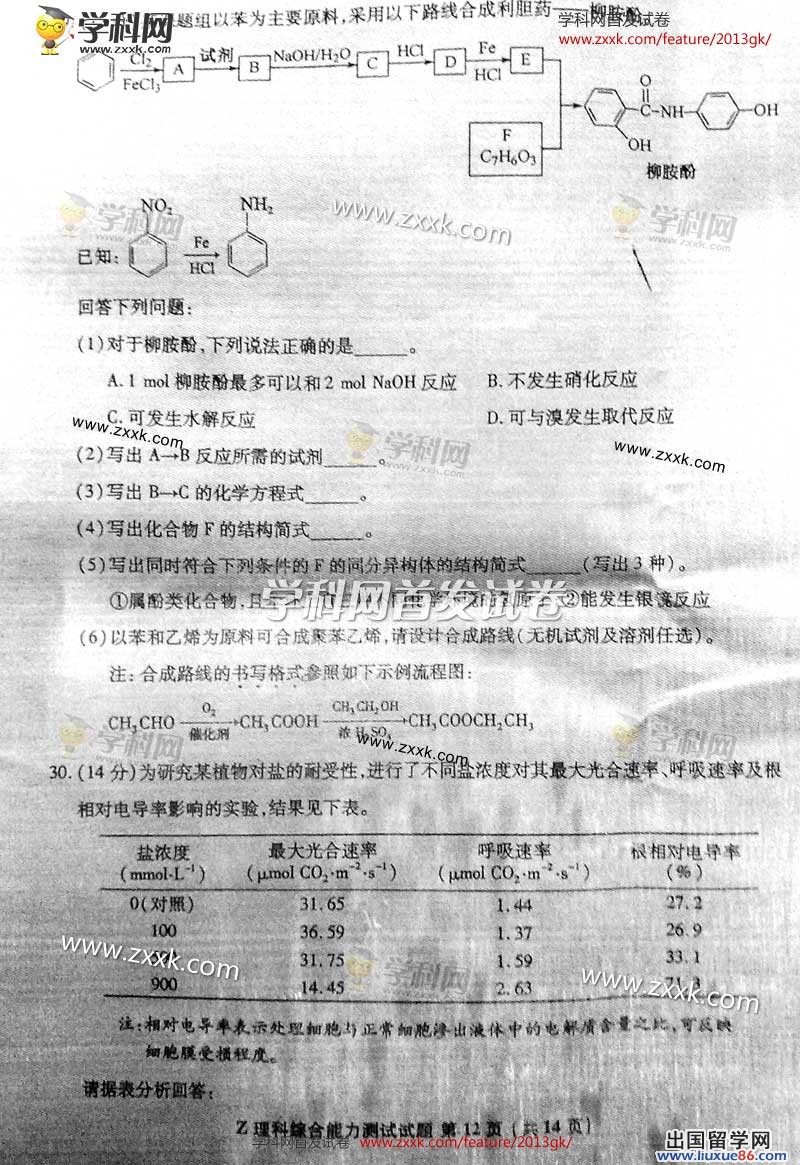 题组以苯为主要原料,采用以下路线合成利胆药——柳胺酚
学科网首发试卷
www.zxxk.com/feature/2013gk/
学科网
www.zxxk.com
Cl₂
FeCl₃
A
试剂
B
NaOH/H₂O
C
HCl
D
Fe
HCl
E
F
C₇H₆O₃
O
C—NH
OH
OH
柳胺酚
学科网
www.zxxk.com
学科网
NO₂
NH₂
已知:
Fe
HCl
回答下列问题:
(1)对于柳胺酚,下列说法正确的是______。
A. 1 mol 柳胺酚最多可以和 2 mol NaOH 反应 B. 不发生硝化反应
C. 可发生水解反应 D. 可与溴发生取代反应
www.zxxk.com
学科网
www.zxxk.com
(2)写出 A→B 反应所需的试剂______。
(3)写出 B→C 的化学方程式______。
(4)写出化合物 F 的结构简式______。
(5)写出同时符合下列条件的 F 的同分异构体的结构简式______(写出 3 种)。
学科网首发试卷
①属酚类化合物,且 ②能发生银镜反应
(6)以苯和乙烯为原料可合成聚苯乙烯,请设计合成路线(无机试剂及溶剂任选)。
注:合成路线的书写格式参照如下示例流程图:
CH₃CHO O₂ 催化剂 → CH₃COOH CH₃CH₂OH 浓 H₂SO₄ → CH₃COOCH₂CH₃
学科网
www.zxxk.com
学科网
30. (14 分)为研究某植物对盐的耐受性,进行了不同盐浓度对其最大光合速率、呼吸速率及根
相对电导率影响的实验,结果见下表。
盐浓度 最大光合速率 呼吸速率 根相对电导率
(mmol·L⁻¹) (μmol CO₂·m⁻²·s⁻¹) (μmol CO₂·m⁻²·s⁻¹) (%)
0(对照) 31.65 1.44 27.2
100 36.59 1.37 26.9
31.75 1.59 33.1
900 14.45 2.63
www.zxxk.com
学科网
www.zxxk.com
注:相对电导率表示处理细胞与正常细胞渗出液体中的电解质含量之比,可反映
细胞膜受损程度。
请据表分析回答:
Z 理科综合能力测试试题 第 12 页 (共 14 页)
学科网首发试卷 www.zxxk.com/feature/2013gk/
出国留学网
www.liuxue86.com